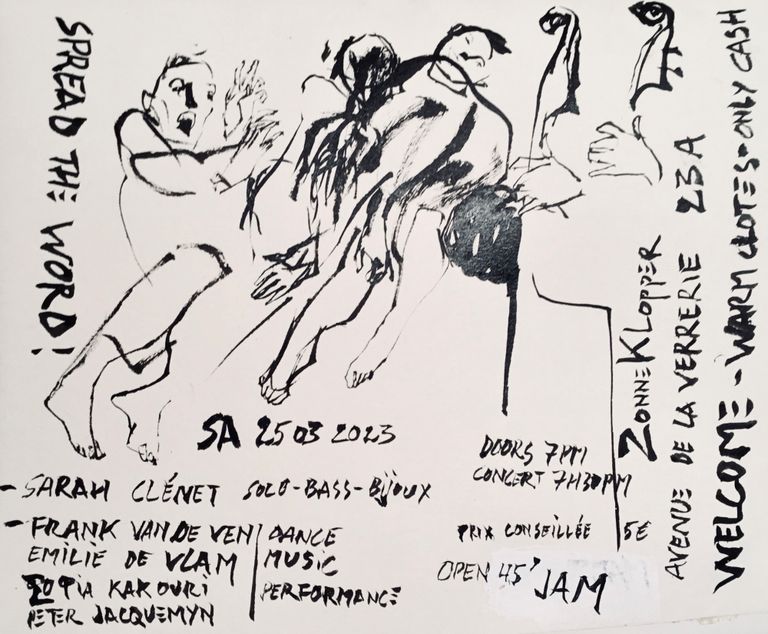 SPREAD THE WORD!
SA 25 03 2023
- SARAH CLÉNET SOLO-BASS-BIJOUX
- FRANK VAN DE VEN
EMILIE DE VLAM
SOFIA KAKOURI
PETER JACQUEMYN
DANCE
MUSIC
PERFORMANCE
DOORS 7PM
CONCERT 7H30PM
PRIX CONSEILLÉE 5€
OPEN 45' JAM
ZONNEKLOPPER
AVENUE DE LA VERRERIE 23A
WELCOME - WARM CLOTES - ONLY CASH